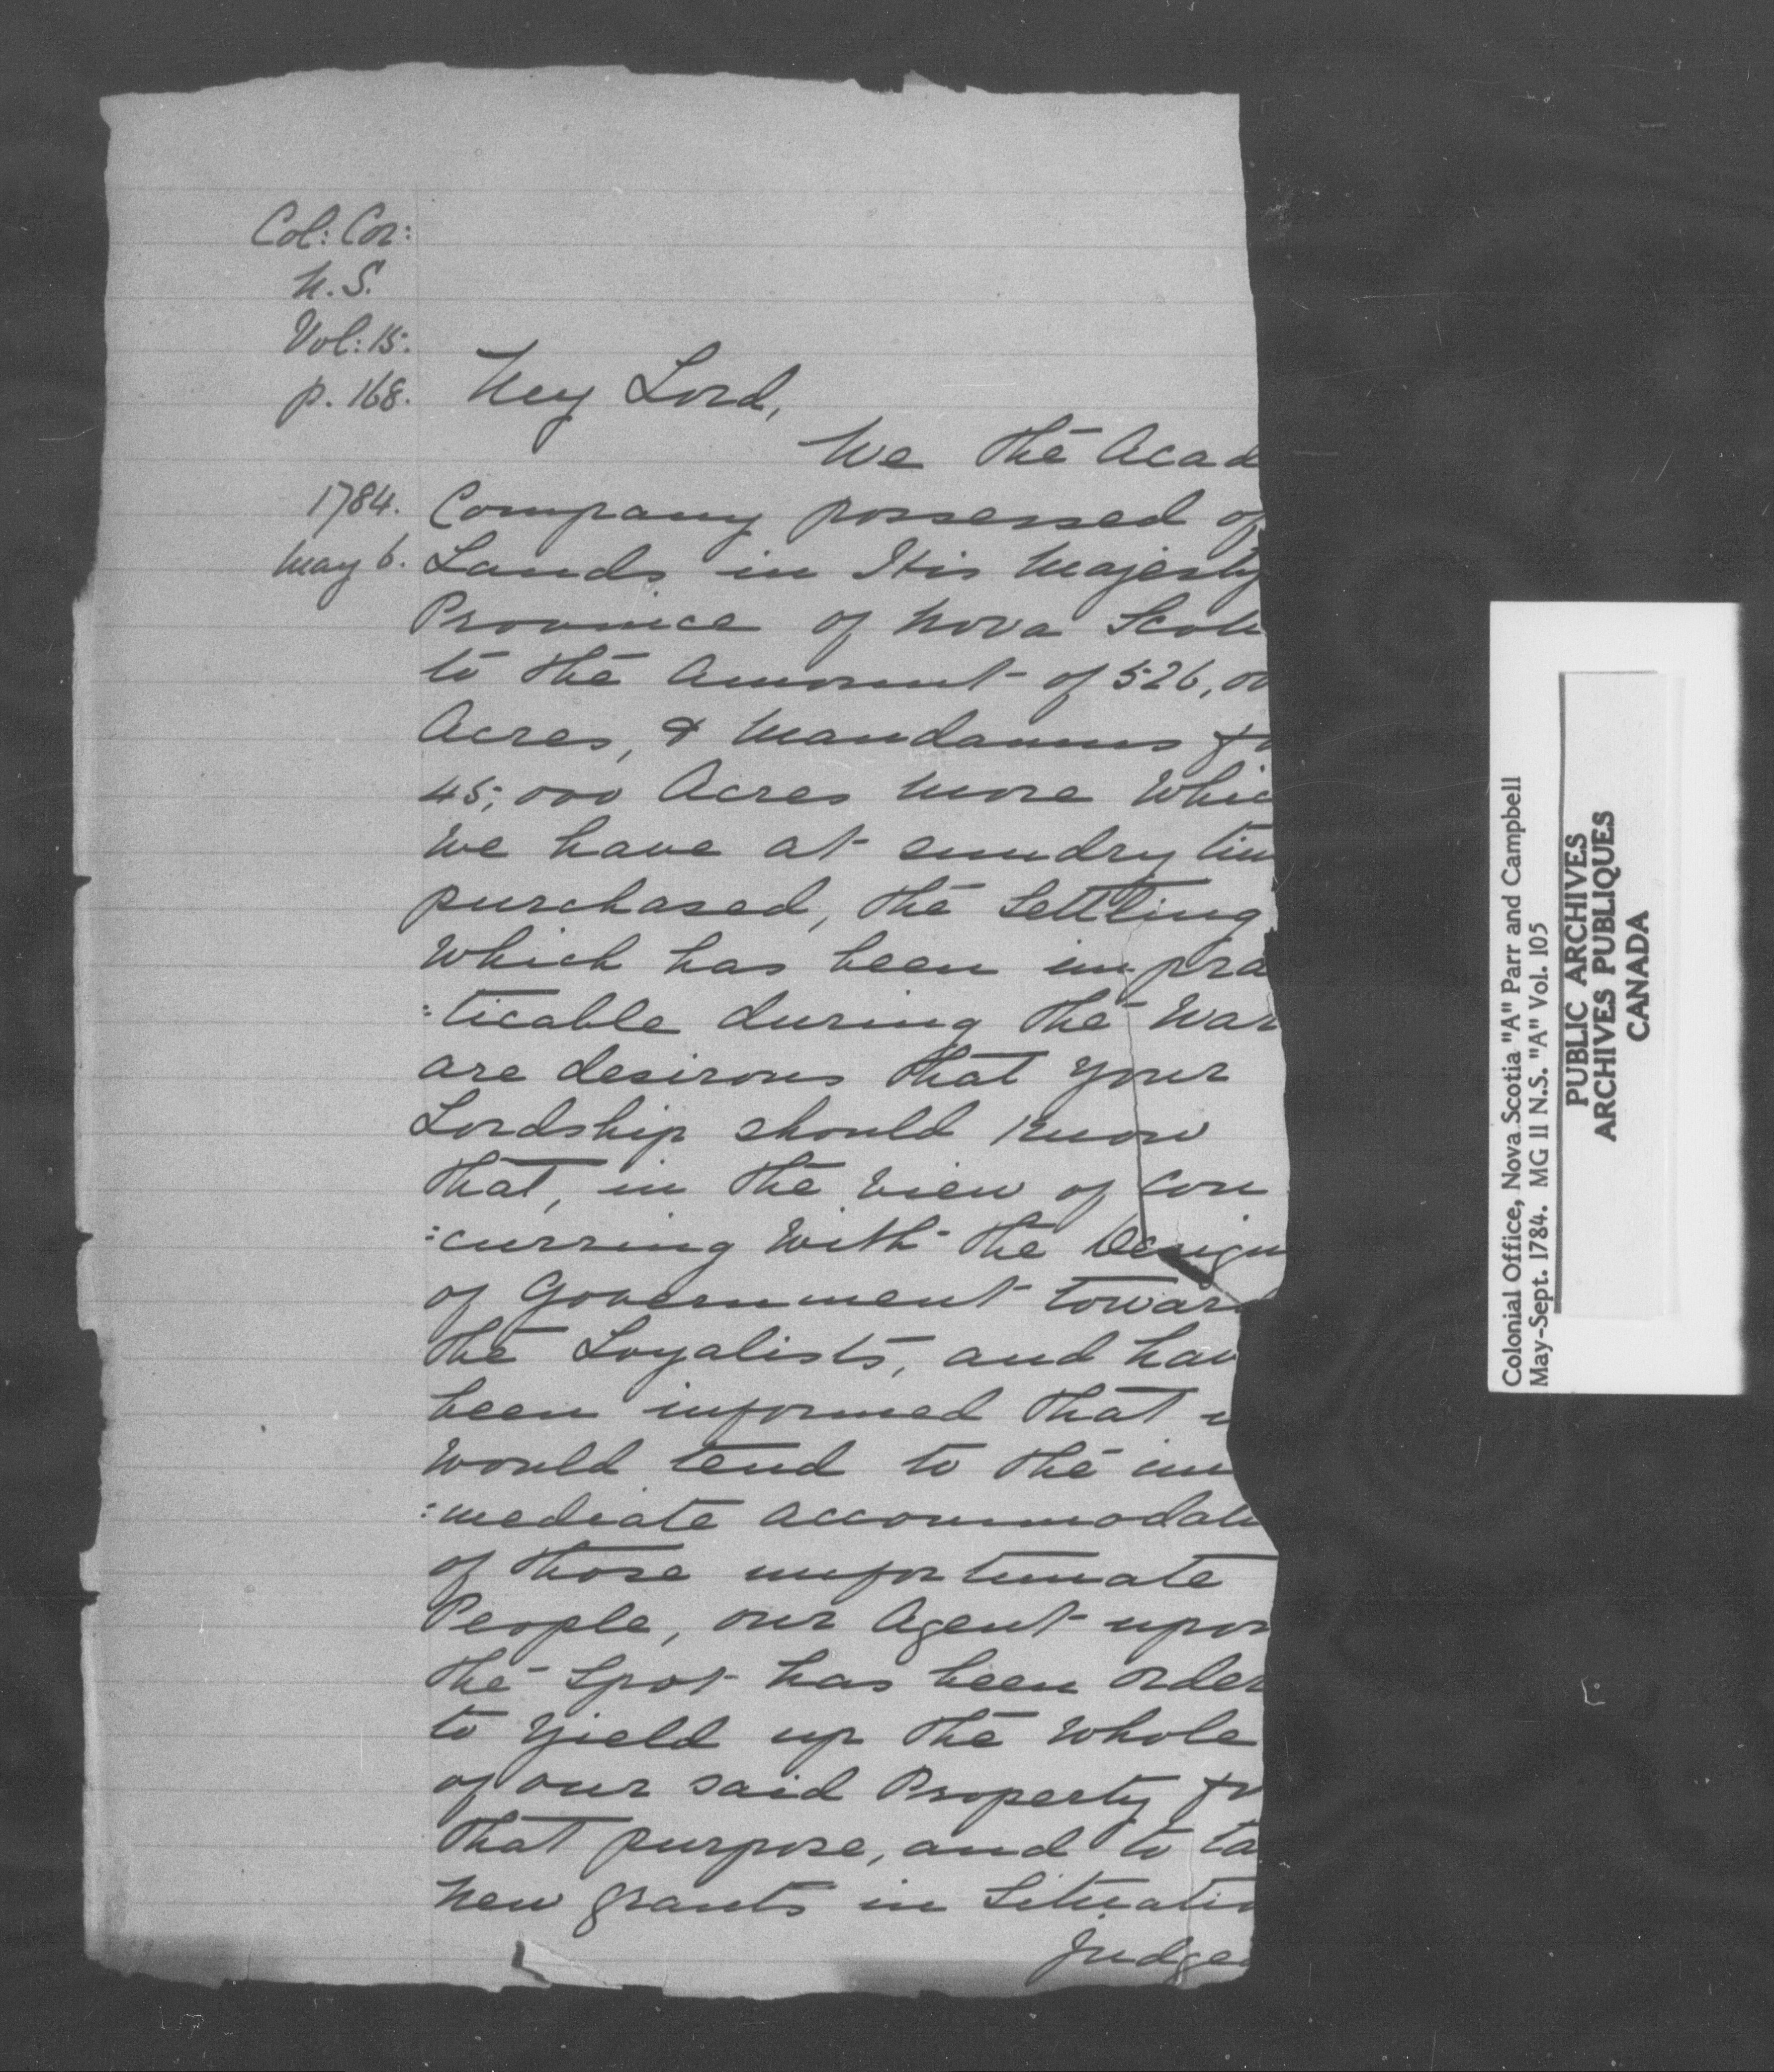 Col: Cor:
N. S.
Vol: 15.
p. 168.
My Lord,
We the Acad
1784.
Company possessed of
May 6.
Lands in His Majesty
Province of Nova Scoti
to the Amount of 526,00
Acres, & Mandamus fo
45,000 Acres more Whic
We have at sundry tim
purchased, the Settling
Which has been impra
:ticable during the War
are desirous that Your
Lordship should know
that, in the View of con
:curring With the Design
of Government toward
the Loyalists, and hav
been informed that i
Would tend to the im
:mediate Accommodati
of those unfortunate
People, our Agent upon
the Spot has been Order
to Yield up the Whole
of our said Property fo
that purpose, and to ta
New Grants in Situatio
Judge
Colonial Office, Nova Scotia "A" Parr and Campbell
May-Sept. 1784. MG 11 N.S. "A" Vol. 105
PUBLIC ARCHIVES
ARCHIVES PUBLIQUES
CANADA